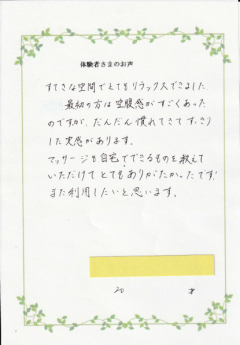 体験者さまのお声
すてきな空間でとてもリラックスできました。
最初の方は空腹感がすごくあった
のですが、だんだん慣れてきてすっきり
した実感があります。
マッサージも自宅でできるものを教えて
いただけてとてもありがたかったです!
また利用したいと思います。
20 才